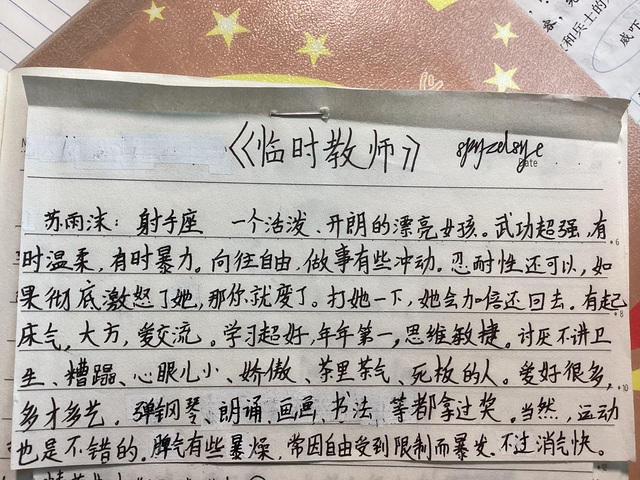 和兵士的
威吓
《临时教师》
Date
苏雨沫：射手座 一个活泼、开朗的漂亮女孩。武功超强，有
时温柔，有时暴力。向往自由，做事有些冲动。忍耐性还可以，如
果彻底激怒了她，那你就废了。打她一下，她会加倍还回去。有起
床气，大方，爱交流。学习超好，年年第一，思维敏捷。讨厌不讲卫
生、糟蹋、心眼儿小、娇傲、茶里茶气、死板的人。爱好很多，
多才多艺。弹钢琴、朗诵、画画、书法，等都拿过奖。当然，运动
也是不错的。脾气有些暴燥，常因自由受到限制而暴发。不过消气快。